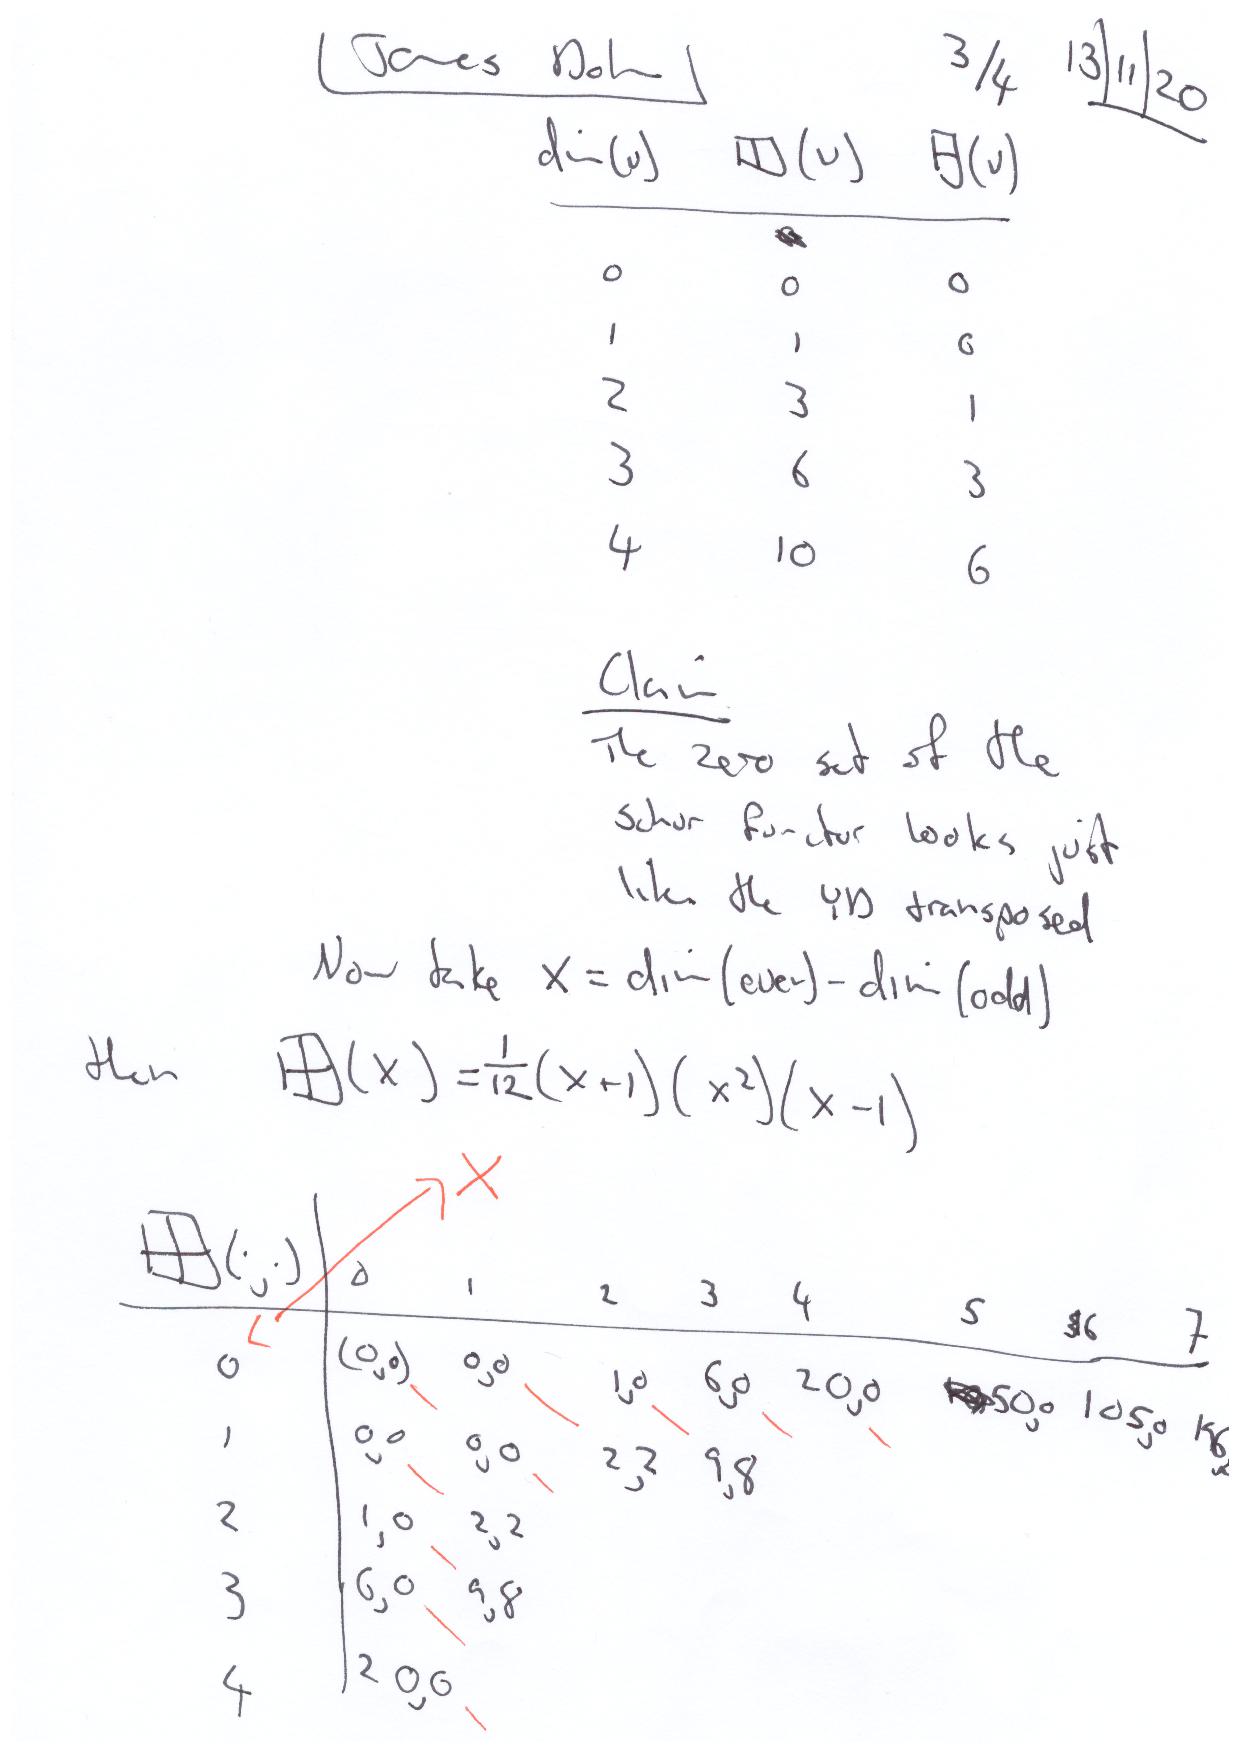 James Dol
3/4 13/11/20
dim(v) □□(v) 日(v)
0 0 0
1 1 0
2 3 1
3 6 3
4 10 6
Claim
The zero set of the
schur functor looks just
like the YD transposed
Now take X = dim(even) - dim(odd)
then 田(X) = 1/12 (X+1)(X²)(X-1)
X
田(·,·) 0 1 2 3 4 5 6 7
0 (0,0) 0,0 1,0 6,0 20,0 50,0 105,0 196,
1 0,0 0,0 2,2 9,8
2 1,0 2,2
3 6,0 9,8
4 20,0